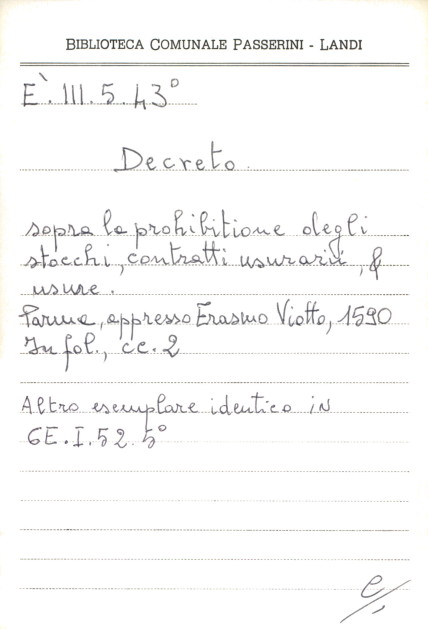 BIBLIOTECA COMUNALE PASSERINI - LANDI
È. III. 5. 43°
Decreto
sopra la prohibitione degli
stocchi, contratti usurarii, &
usure.
Parma, appresso Erasmo Viotto, 1590
In fol., cc. 2
Altro esemplare identico in
6E. I. 52. 5°